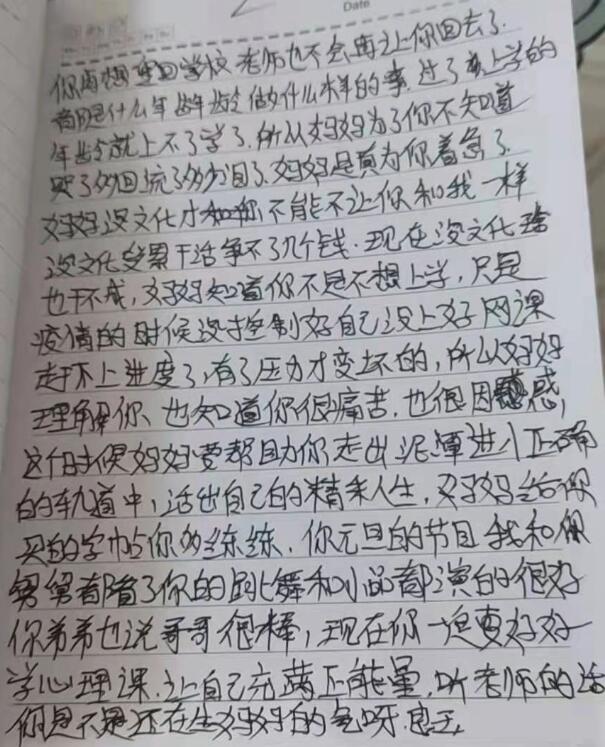 Date
你再想重回学校老师也不会再让你回去了.
都是什么年龄做什么样的事.过了上学的
年龄就上不了学了.所以妈妈为了你不知道
哭了多少回流了多少泪了.妈妈是真为你着急了
妈妈没文化才和你不能不让你和我一样
没文化受累干活争不了几个钱.现在没文化啥
也干不成,妈妈知道你不是不想上学,只是
疫情的时候没才控制好自己没上好网课
赶不上进度了,有了压力才变坏的,所以妈妈
理解你、也知道你很痛苦.也很困惑,
这个时候妈妈要帮助你走出泥潭进入正确
的轨道中,活出自己的精采人生,妈妈给你
买的字帖你多练练.你元旦的节目我和你
舅舅都看了你的跳舞和小品都演的很好
你弟弟也说哥哥很棒,现在你一定要好好
学心理课.让自己充满正能量.听老师的话
你是不是还在生妈妈的气呀.